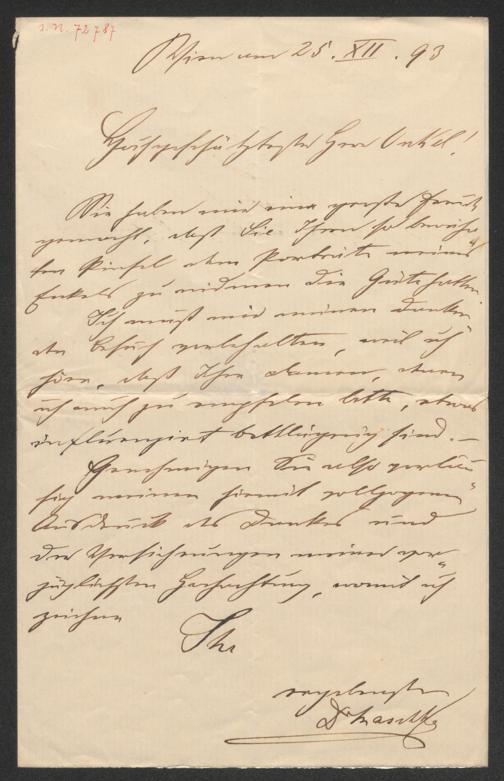 I.N. 72787
Wien am 25. XII. 93
Hochgeschätztester Herr Onkel!
Sie haben mir eine große Freude
gemacht, daß Sie Ihren so bewähr-
ten Pinsel dem Portraite meines
Enkels zu widmen die Güte hatten.
Ich muß mir meinen Dankes-
besuch vorbehalten, weil ich
höre, daß Ihre Damen, denen
ich mich zu empfehlen bitte, etwas
influenzirt bettlägerig sind. –
Genehmigen Sie also vorläu-
fig meinen hiemit vollzogenen
Ausdruck des Dankes und
der Versicherungen meiner vor-
züglichsten Hochachtung, womit ich
zeichne
Ihr
ergebenster
Dr Maschka